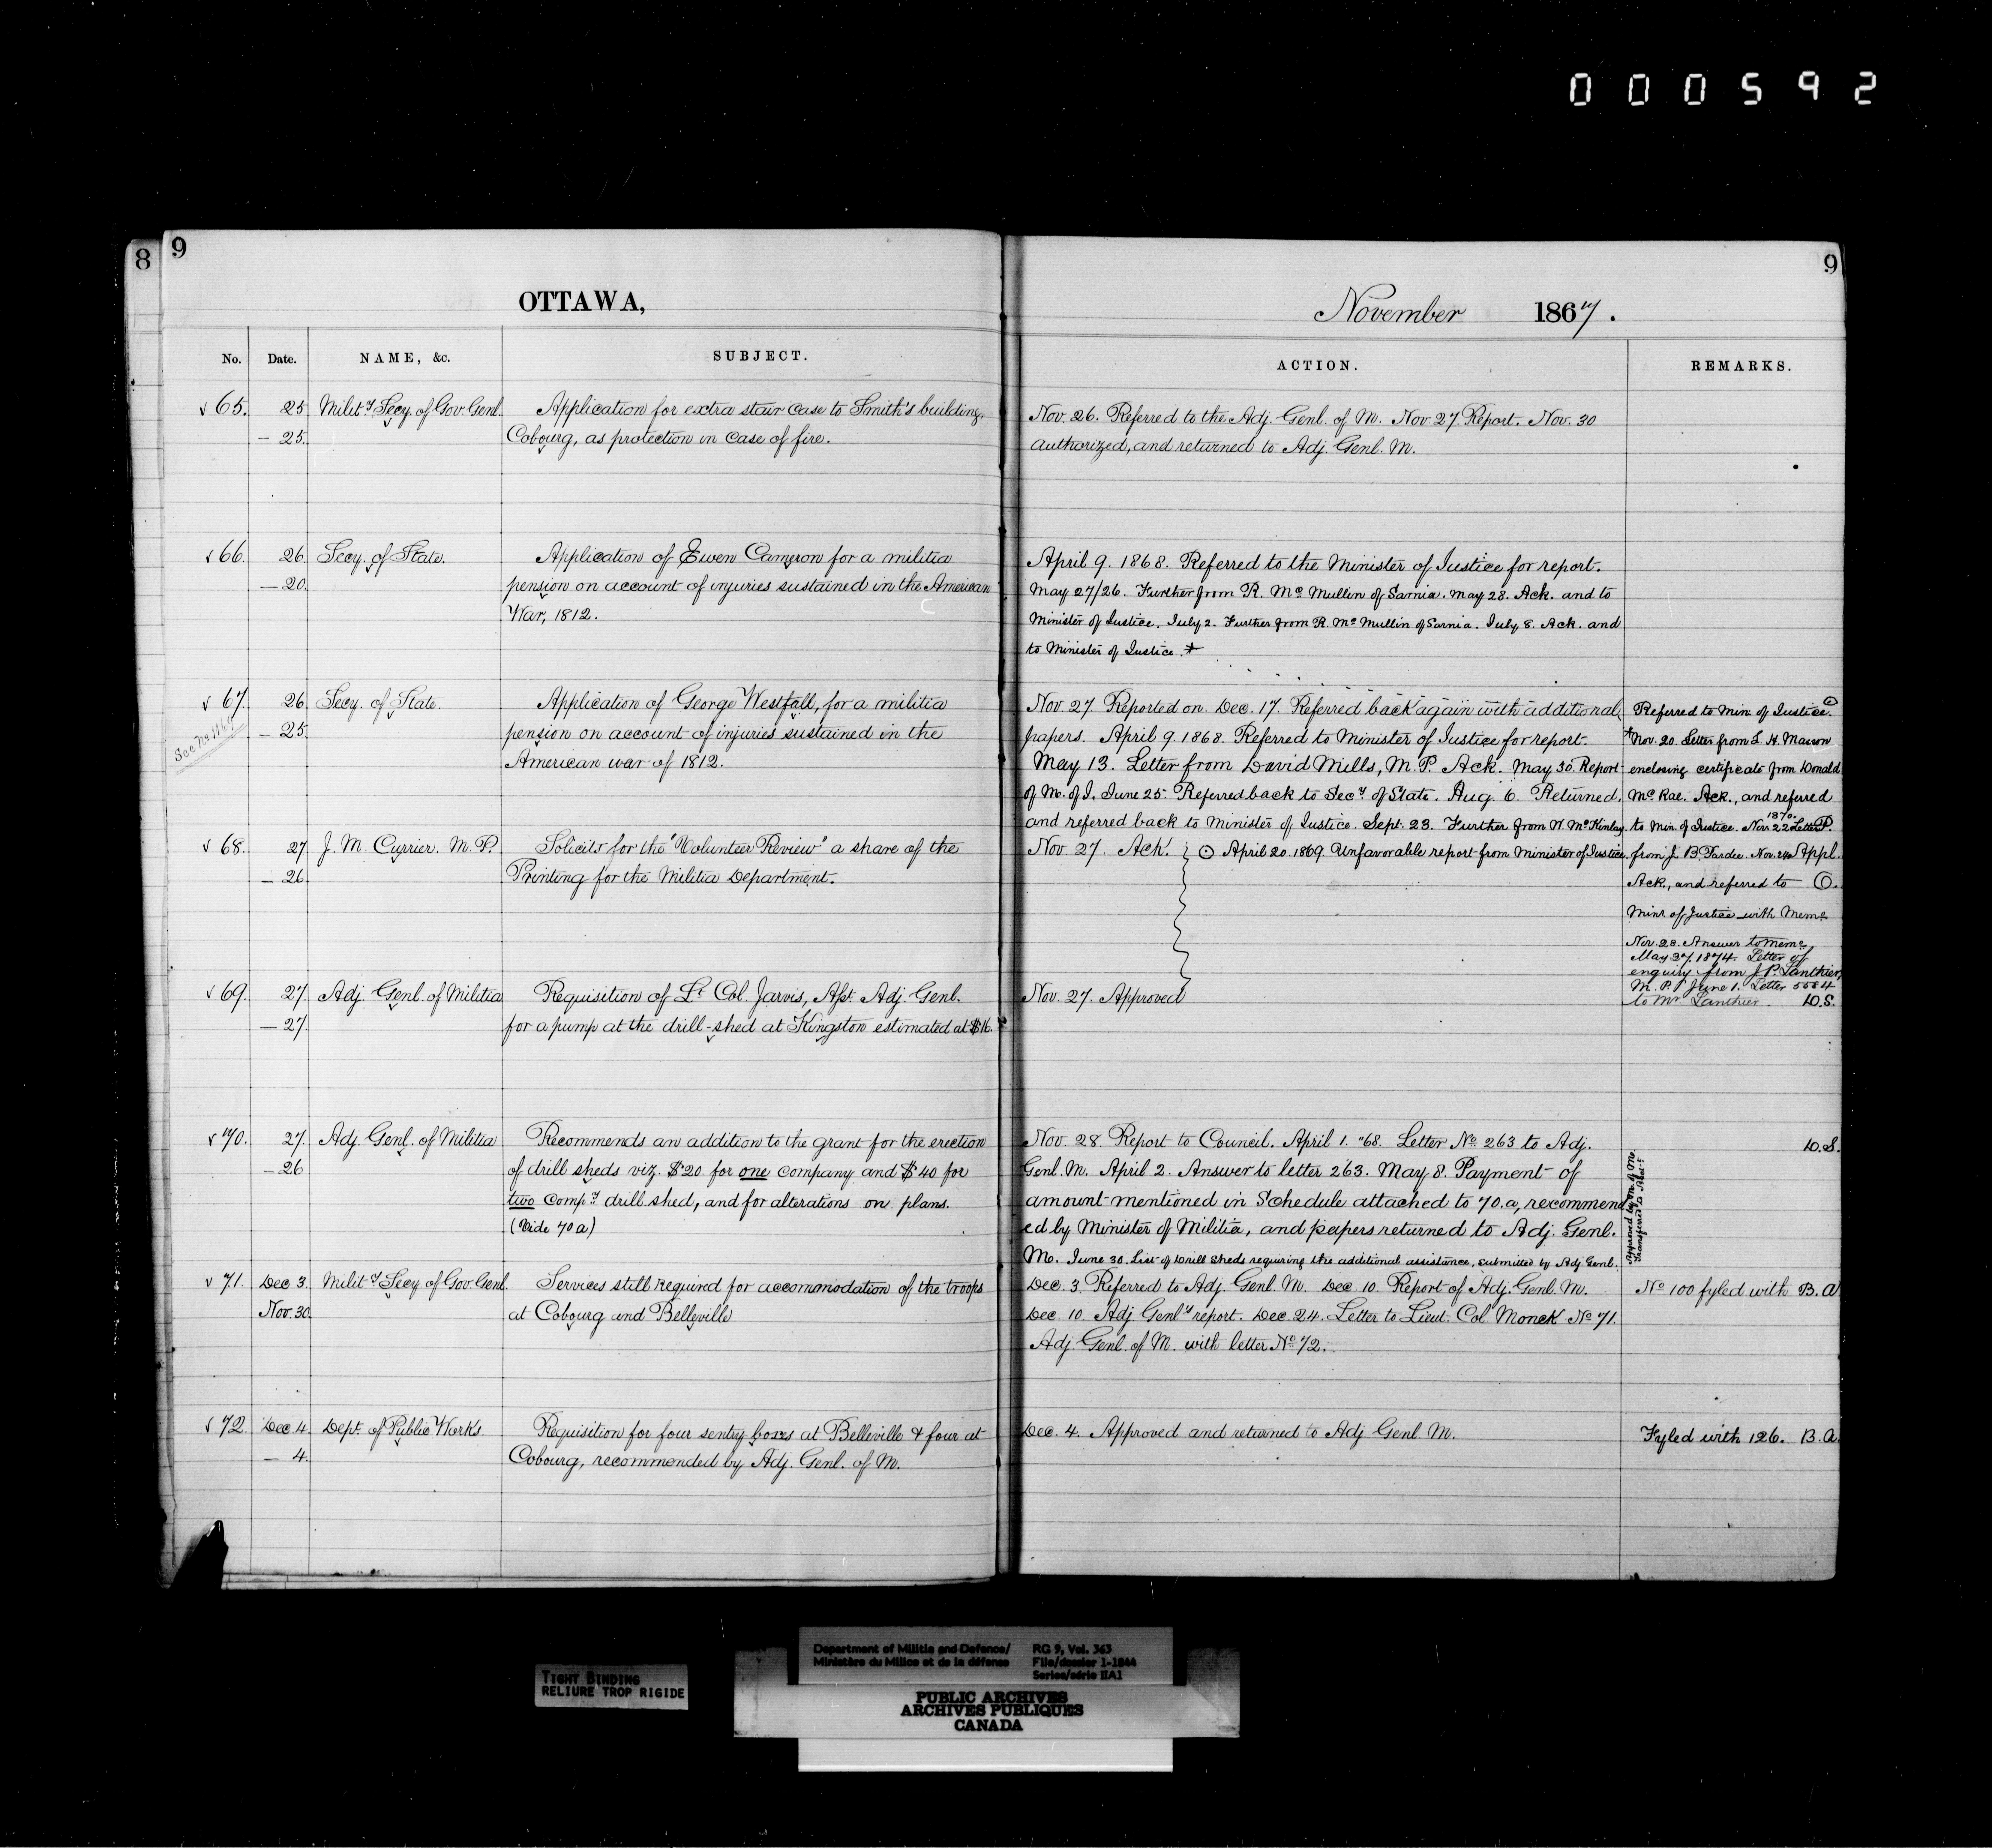 000592
8
9
9
OTTAWA,
November 1867.
No. Date. NAME, &c. SUBJECT.
ACTION. REMARKS.
√ 65. 25 Mility Secy. of Gov. Genl. Application for extra stair case to Smith's building,
— 25. Cobourg, as protection in case of fire.
Nov. 26. Referred to the Adj. Genl. of M. Nov. 27. Report. Nov. 30
authorized, and returned to Adj. Genl. M.
√ 66. 26. Secy. of State. Application of Ewen Cameron for a militia
— 20. pension on account of injuries sustained in the American
War, 1812.
April 9. 1868. Referred to the Minister of Justice for report.
May 27/26. Further from R. Mc Mullin of Sarnia. May 28. Ack. and to
Minister of Justice. July 2. Further from R. Mc Mullin of Sarnia. July 8. Ack. and
to Minister of Justice. *
√ 67. 26. Secy. of State. Application of George Westfall, for a militia
See No
— 25. pension on account of injuries sustained in the
American war of 1812.
Nov. 27 Reported on. Dec. 17. Referred back again with additional
papers. April 9. 1868. Referred to Minister of Justice for report.
May 13. Letter from David Mills, M.P. Ack. May 30. Report
of M. of J. June 25. Referred back to Secy of State. Aug. 6. Returned,
and referred back to Minister of Justice. Sept. 23. Further from W. McKinlay.
Referred to Min. of Justice.
*Nov. 20. Letter from L. H. Masson
enclosing certificate from Donald
Mc Rae. Ack., and referred
to Min. of Justice. Nov. 22 1870. Letter P.
from J. B. Pardee. Nov. 24 Appl.
Ack., and referred to ⊙.
Minr of Justice with Memo
Nov. 28. Answer to memo
May 27. 1874. Letter of
enquiry from J. P. Lanthier,
M. P. June 1. Letter 5584
to Mr Lanthier. D.S.
√ 68. 27 J. M. Currier. M. P. Solicits for the "Volunteer Review" a share of the
— 26. Printing for the Militia Department.
Nov. 27. Ack. ⊙ April 20. 1869. Unfavorable report from Minister of Justice.
√ 69. 27. Adj. Genl. of Militia Requisition of Lt Col. Jarvis, Asst. Adj. Genl.
— 27. for a pump at the drill-shed at Kingston estimated at $16.
Nov. 27. Approved
√ 70. 27. Adj. Genl. of Militia Recommends an addition to the grant for the erection
— 26 of drill sheds viz. $20. for one company and $40 for
two Compy drill shed, and for alterations on plans.
(Vide 70a)
Nov. 28. Report to Council. April 1. "68. Letter No 263 to Adj.
Genl. M. April 2. Answer to letter 263. May 8. Payment of
amount mentioned in Schedule attached to 70.a, recommend
ed by Minister of Militia, and papers returned to Adj. Genl.
M. June 30. List of Drill Sheds requiring the additional assistance, submitted by Adj. Genl.
Approved by M. of M.
D.S.
√ 71. Dec 3. Mility Secy of Gov. Genl. Services still required for accommodation of the troops
Nov. 30. at Cobourg and Belleville
Dec. 3 Referred to Adj. Genl. M. Dec. 10. Report of Adj. Genl. M.
Dec. 10. Adj. Genl's report. Dec. 24. Letter to Lieut. Col. Monck No 71.
Adj. Genl. of M. with letter No 72.
No 100 fyled with B. A.
√ 72. Dec 4. Dept. of Public Works Requisition for four sentry boxes at Belleville & four at
— 4. Cobourg, recommended by Adj. Genl. of M.
Dec. 4. Approved and returned to Adj. Genl. M.
Fyled with 126. B. A.
TIGHT BINDING
RELIURE TROP RIGIDE
Department of Militia and Defence/ RG 9, Vol. 363
Ministère du Milice et de la défense File/dossier 1-1844
Series/série IIA1
PUBLIC ARCHIVES
ARCHIVES PUBLIQUES
CANADA